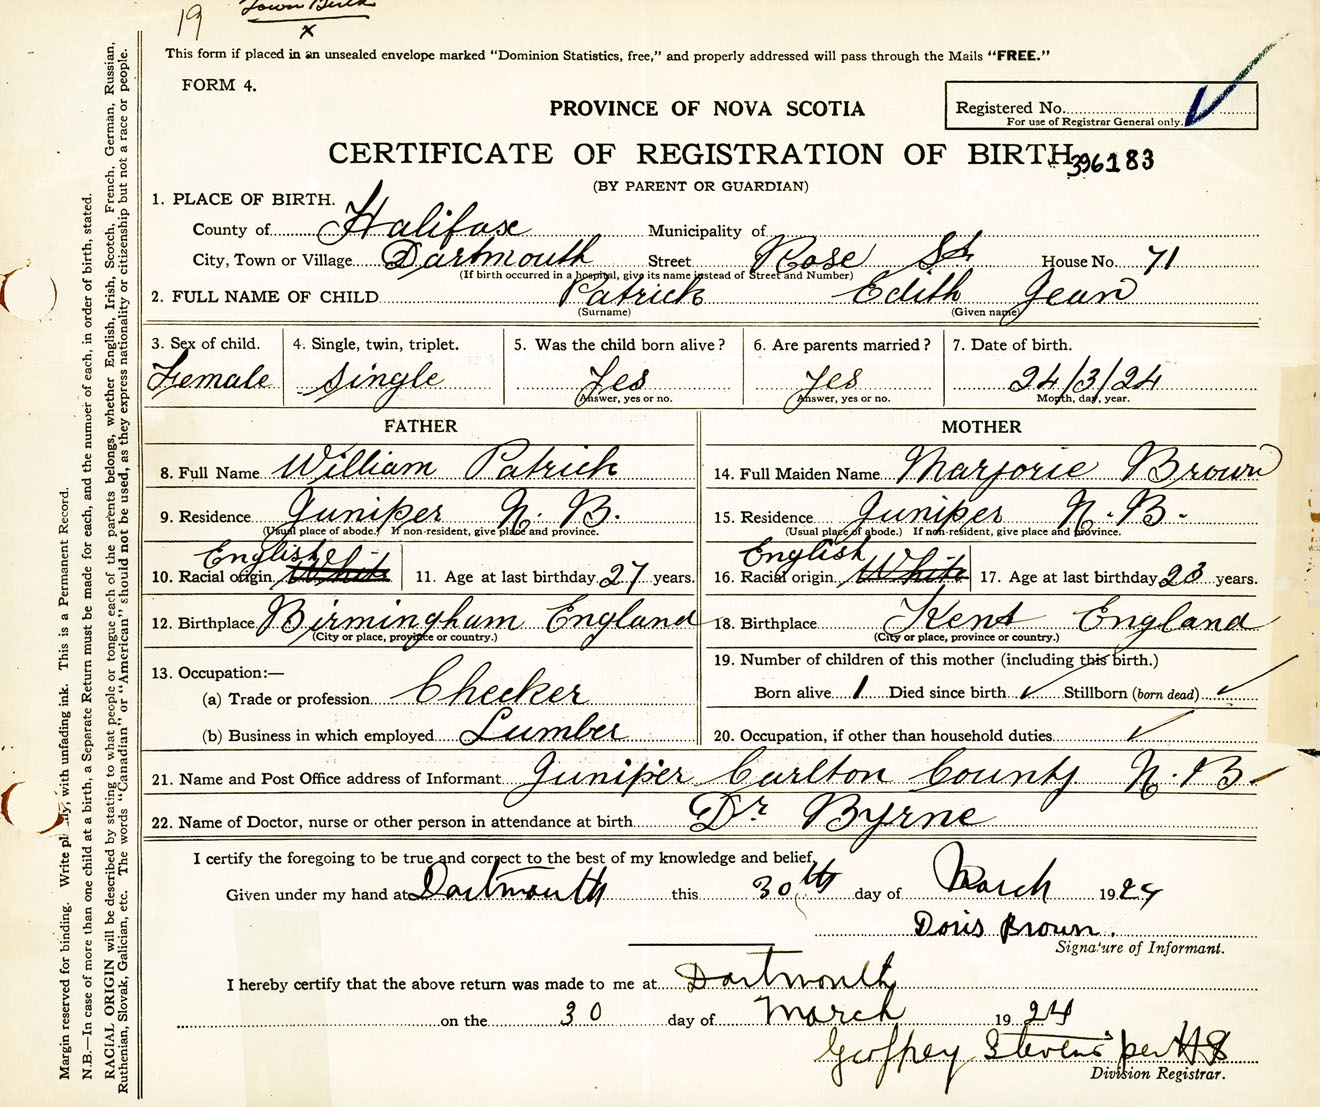 19 Town Birth
x
This form if placed in an unsealed envelope marked "Dominion Statistics, free," and properly addressed will pass through the Mails "FREE."
FORM 4.
PROVINCE OF NOVA SCOTIA
Registered No.
For use of Registrar General only.
CERTIFICATE OF REGISTRATION OF BIRTH 396183
(BY PARENT OR GUARDIAN)
1. PLACE OF BIRTH.
County of Halifax Municipality of
City, Town or Village Dartmouth Street Rose St House No. 71
(If birth occurred in a hospital, give its name instead of Street and Number)
2. FULL NAME OF CHILD Patrick Edith Jean
(Surname) (Given name)
3. Sex of child. 4. Single, twin, triplet. 5. Was the child born alive? 6. Are parents married? 7. Date of birth.
Female Single Yes Yes 24/3/24
Answer, yes or no. Answer, yes or no. Month, day, year.
FATHER MOTHER
8. Full Name William Patrick 14. Full Maiden Name Marjorie Brown
9. Residence Juniper N. B. 15. Residence Juniper N. B.
(Usual place of abode.) If non-resident, give place and province. (Usual place of abode.) If non-resident, give place and province.
English English
10. Racial origin White 11. Age at last birthday 27 years. 16. Racial origin White 17. Age at last birthday 23 years.
12. Birthplace Birmingham England 18. Birthplace Kent England
(City or place, province or country.) (City or place, province or country.)
13. Occupation:— 19. Number of children of this mother (including this birth.)
(a) Trade or profession Checker Born alive 1 Died since birth ✓ Stillborn (born dead) ✓
(b) Business in which employed Lumber 20. Occupation, if other than household duties ✓
21. Name and Post Office address of Informant Juniper Carlton County N. B.
22. Name of Doctor, nurse or other person in attendance at birth Dr Byrne
I certify the foregoing to be true and correct to the best of my knowledge and belief,
Given under my hand at Dartmouth this 30th day of March 1924
Doris Brown.
Signature of Informant.
I hereby certify that the above return was made to me at Dartmouth
on the 30 day of March 1924
Geoffrey Stevens per H S
Division Registrar.
Margin reserved for binding. Write plainly, with unfading ink. This is a Permanent Record.
N.B.—In case of more than one child at a birth, a Separate Return must be made for each, and the number of each, in order of birth, stated.
RACIAL ORIGIN will be described by stating to what people or tongue each of the parents belongs, whether English, Irish, Scotch, French, German, Russian,
Ruthenian, Slovak, Galician, etc. The words "Canadian" or "American" should not be used, as they express nationality or citizenship but not a race or people.